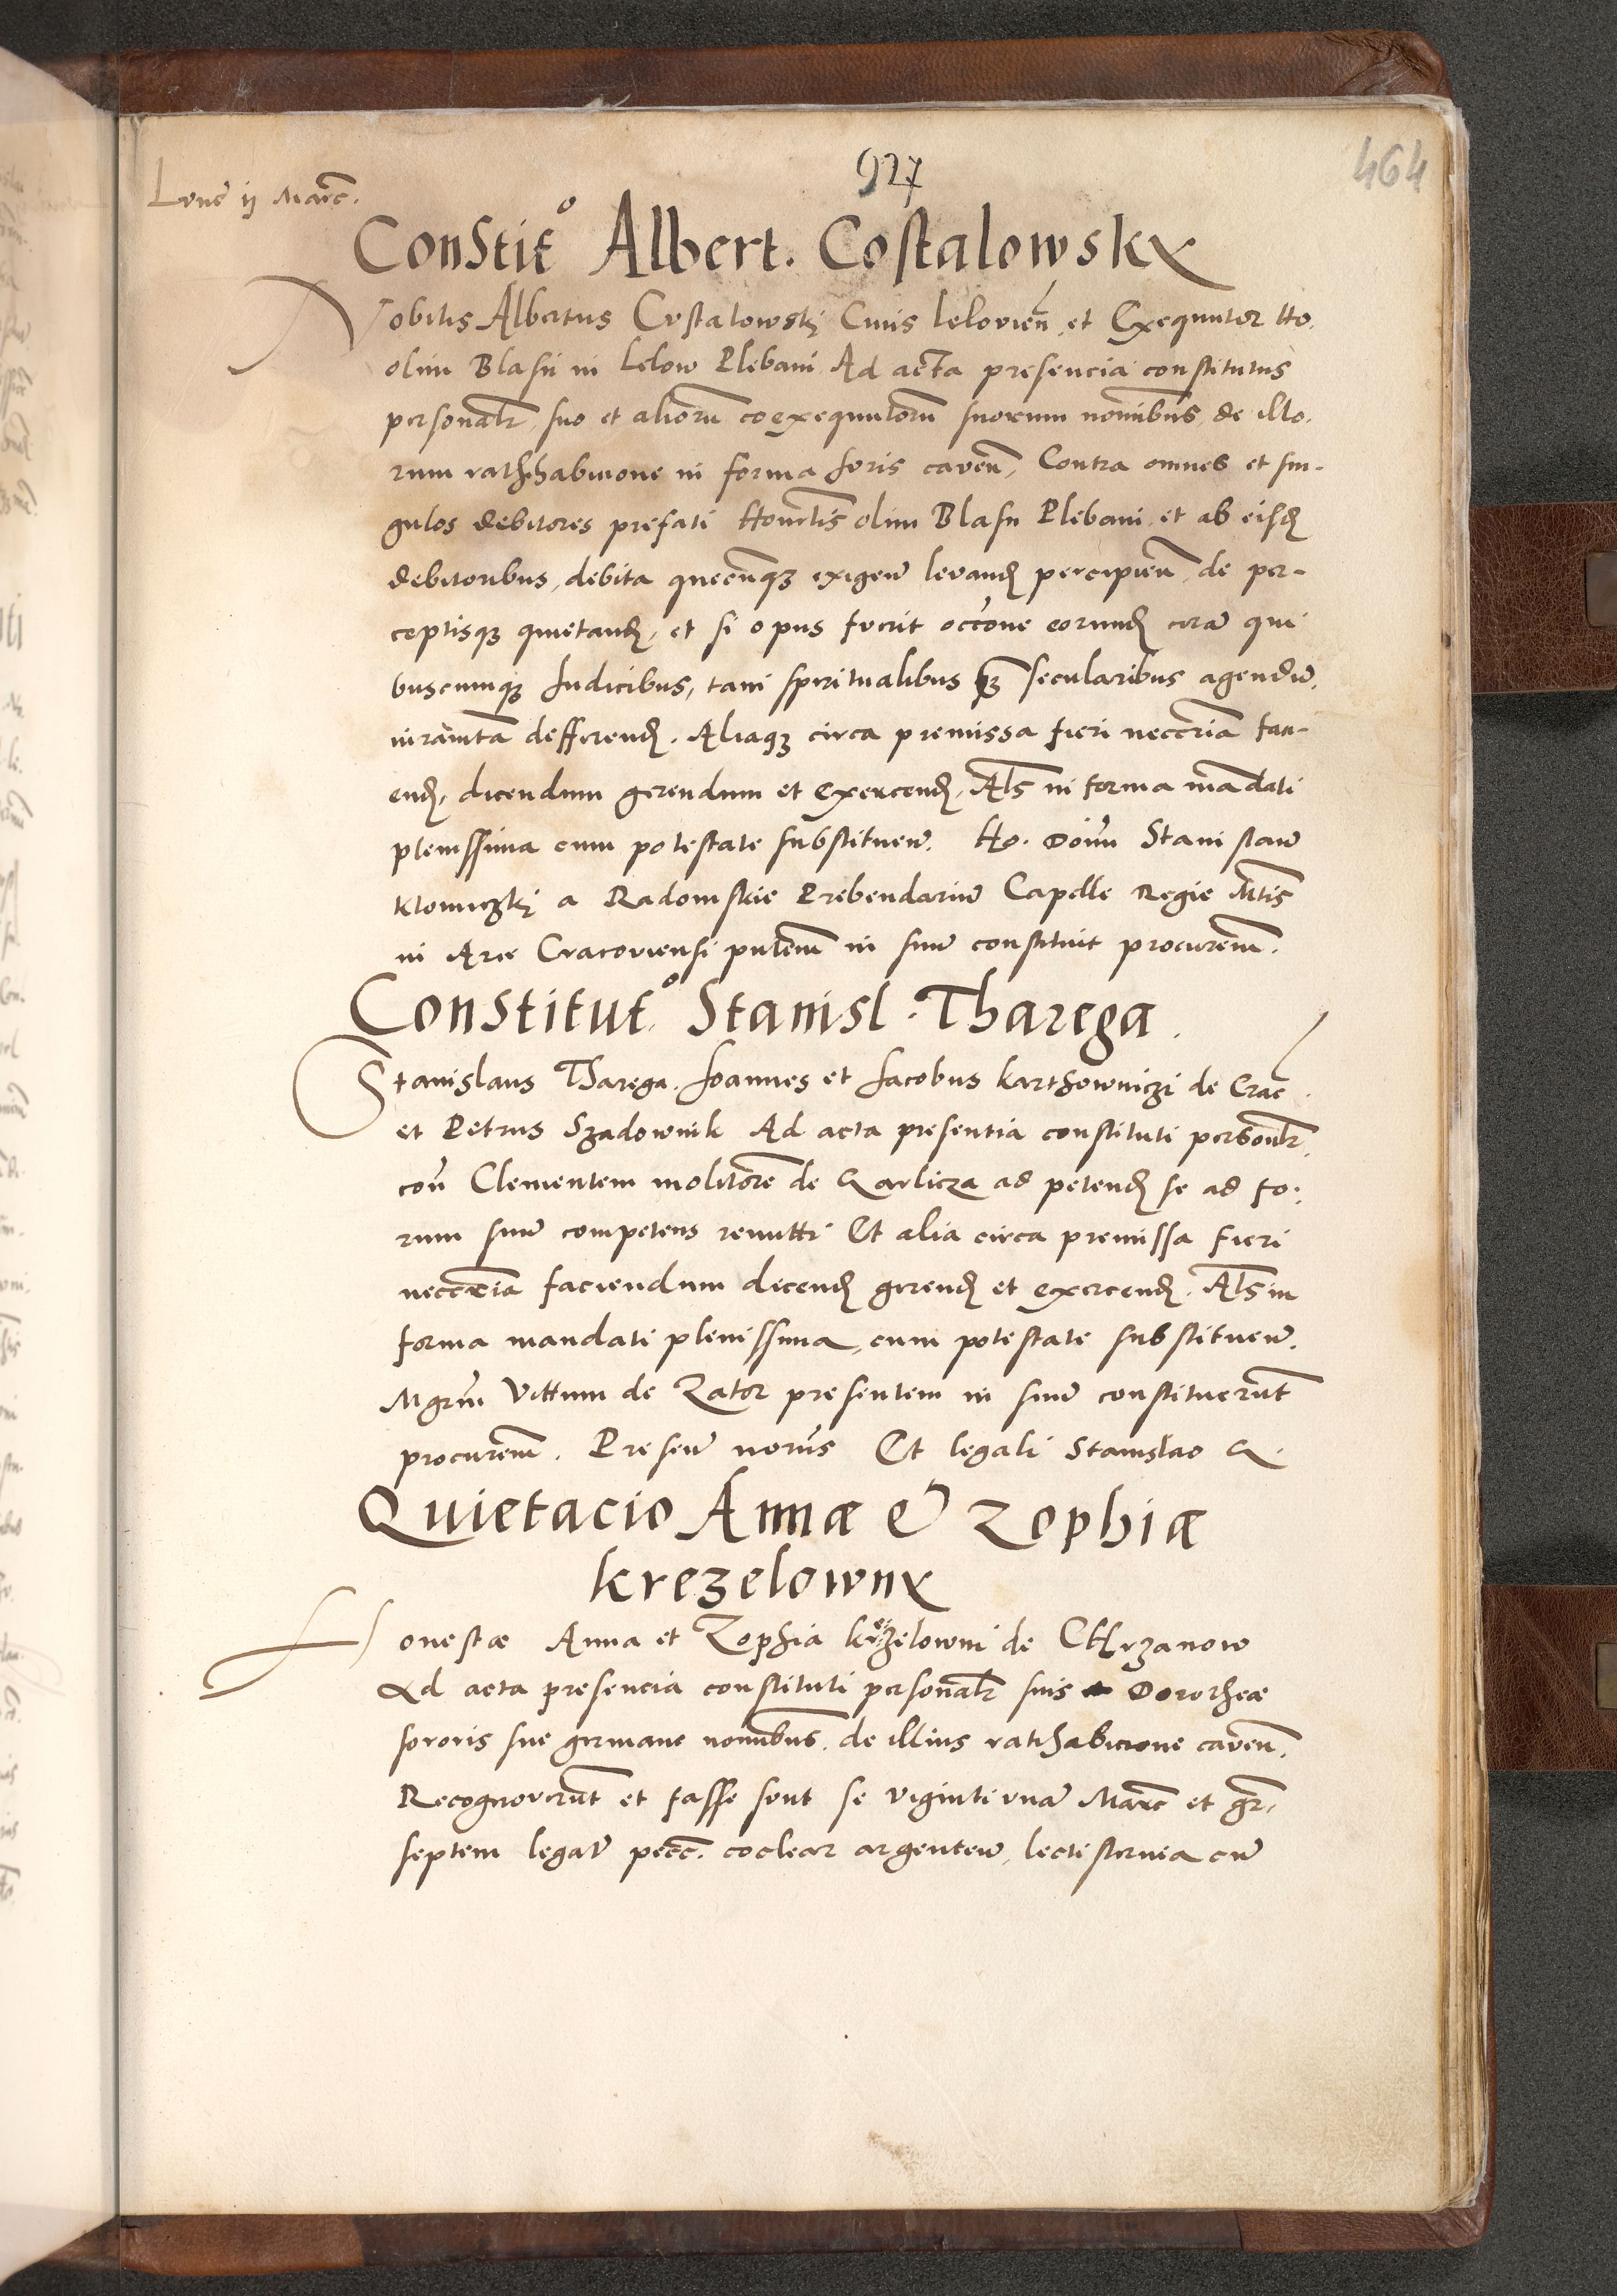 927
464
Lune ij Marc̄.
Constit͞o Albert. Costalowsky
Nobilis Albertus Costalowskj Ciuis leloviēn. et Exequutor Ho.
olim Blasij in Lelow Plebani Ad acta presencia constitutus
personalr̄, suo et aliorū coexequutorū suorum nomibūs, de illo-
rum rathihabicione in forma Juris cavēn, Contra omnes et sin-
gulos debitores prefati Honēstis olim Blasij Plebani, et ab eisdꝫ
debitoribus, debita quecūnqꝫ exigeñ levandꝫ percipieñ, de per-
ceptisqꝫ quietandꝫ, et si opus fuerit occōne eorundꝫ corā qui
buscumqꝫ Judicibus, tam spiritualibus qꝫ secularibus agendū,
iuramta defferendꝫ. Aliaqꝫ circa premissa fieri neccria faci-
endꝫ, dicendum gerendum et exercendꝫ. Als̄ in forma mādati
plenissima cum potestate substitueñ. Ho. Dom̄ Stanislaū
Klomiczkj a Radomskie Prebendariū Capelle Regie Mtis̄
in Arce Cracoviensi pn̄tem in suū constituit procurem̄.
Constitut͞o Stanisl. Tharega.
Stanislaus Tharega. Joannes et Jacobus karthowniczi de Crac̄.
et Petrus Szadownik Ad acta presentia constituti personlr̄,
con̄ Clementem molitorē de Garlicza ad petendꝫ se ad fo-
rum suū competens remitti Et alia circa premissa fieri
neccria faciendum dicendꝫ gerendꝫ et exercendꝫ. Als̄ in
forma mandati plenissima, cum potestate substitueñ.
Mgrm̄ Vittum de Zator presentem in suū constituerūt
procurem̄. Preseñ norūs Et legali Stanislao &.
Quietacio Annæ & Zophiæ
krezelowny
Honestæ Anna et Zophia krezelowni de Chrzanow
Ad acta presencia constituti personalr̄ suis Dorotheæ
sororis sue germane nomibūs. de illius ratihabicione caveñ.
Recognoverūt et fasse sunt se viginti vnā Marc̄ et gr̄,
septem legatū pecc̄. coclear argenteū, lectisternia cū